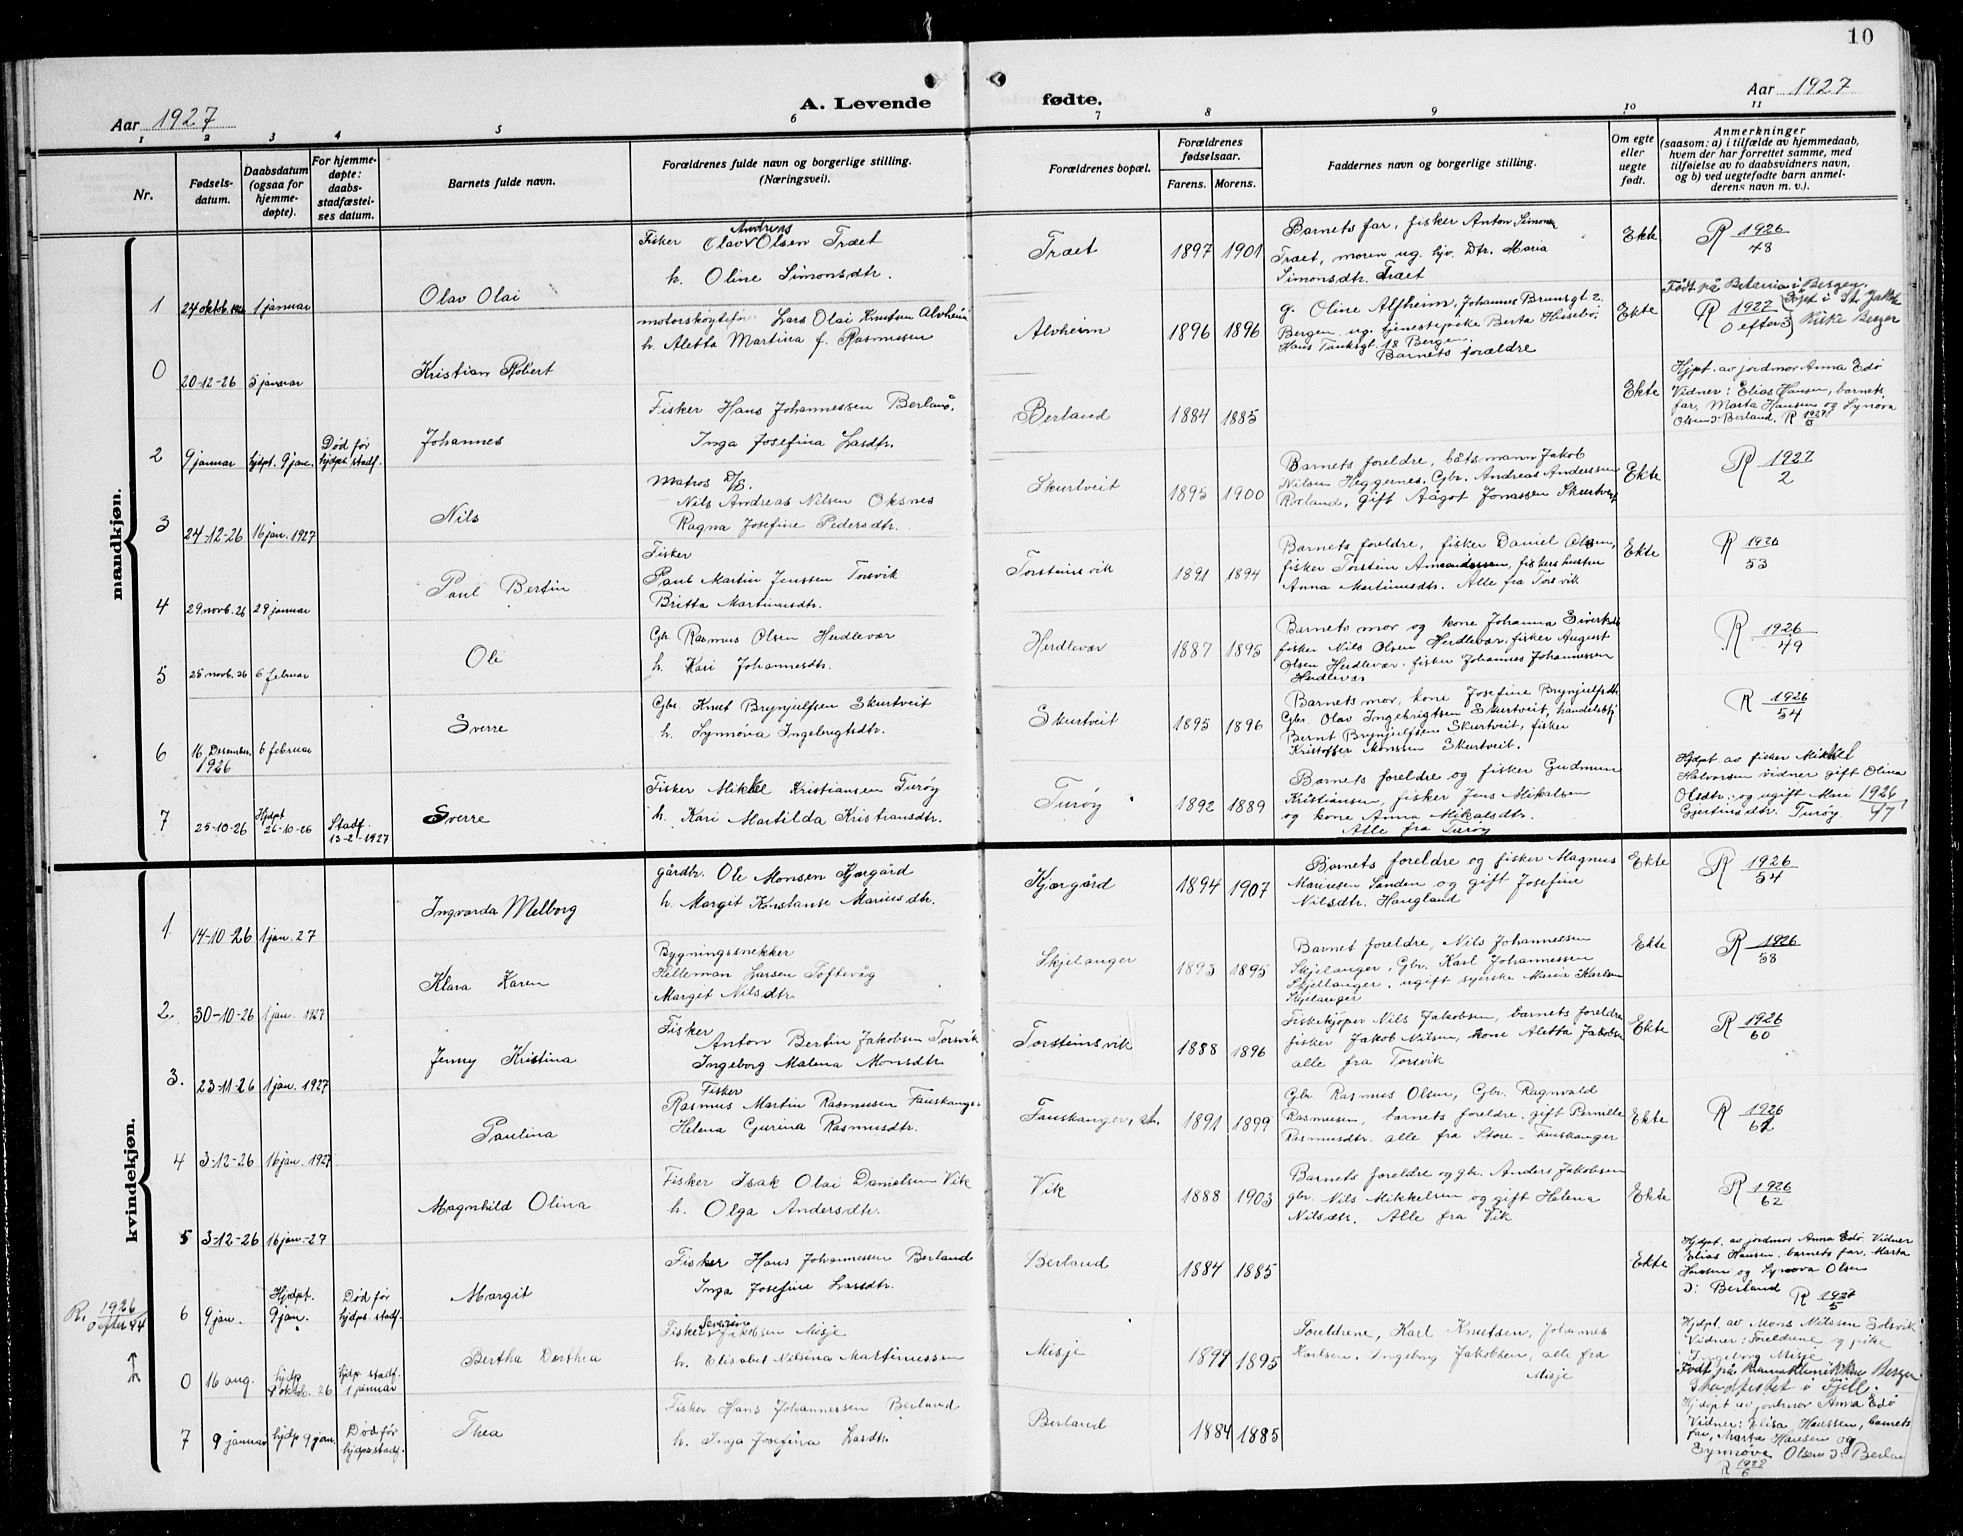 10
Aar 1927
A. Levende fødte.
Aar 1927
1 2 3 4 5 6 7 8 9 10 11
Nr.
Fødsels-
datum.
Daabsdatum
(ogsaa for
hjemme-
døpte).
For hjemme-
døpte:
daabs-
stadfæstel-
ses datum.
Barnets fulde navn.
Forældrenes fulde navn og borgerlige stilling.
(Næringsvei).
Forældrenes bopæl.
Forældrenes
fødselsaar.
Farens. Morens.
Faddernes navn og borgerlige stilling.
Om egte
eller
uegte
født.
Anmerkninger
(saasom: a) i tilfælde av hjemmedaab,
hvem der har forrettet samme, med
tilføielse av to daabsvidners navn,
og b) ved uegtefødte barn anmel-
derens navn m. v.).
mandkjøn.
1 24 oktob. 1926 1 januar
Olav Olai
Fisker Olav Andreas Olsen Træet
h. Oline Simonsdtr.
Træet 1897 1901
Barnets far, fisker Anton Simons
Træet, moren ug. hjv. Dtr. Maria
Simonsdtr. Træet
Ekte
R 1926/48
0 20-12-26 5 januar
Kristian Robert
motorskøytefør Lars Olai Knutsen Alvheim
h. Aletta Martina f. Rasmussen
Alvheim 1896 1896
g. Oline Alfheim, Johannes Brunsgt 2.
Bergen. ug. tjenestepike Berta Husebø,
Hans Tanksgt 18 Bergen.
Barnets forældre
Ekte
Født på Betania i Bergen.
R 1927/0 efter 3 Døpt i St. Jakob
Kirke Bergen
2 9 januar hjdpt. 9 jan. Død før
hjdpt stadf.
Johannes
Fisker Hans Johannessen Berland.
Inga Josefina Larsdtr.
Berland 1884 1885
Ekte
Hjpt. av jordmor Anna Edø
Vidner: Elias Hansen, barnets
far, Marta Hansen og Synøva
Olsen I. Berland. R 1927/5
3 24-12-26 16 jan. 1927
Nils
Matros D/S.
Nils Andreas Nilsen Oksnes
Ragna Josefine Pedersdtr.
Skurtveit 1895 1900
Barnets foreldre, båtsmann Jakob
Nilsen Heggernes. Gbr. Andreas Anderssen
Rorland, gift Aagot Jonassen Skurtveit
Ekte
R 1927/2
4 29 novb. 26 29 januar
Paul Bertin
Fisker
Paul Martin Jenssen Torsvik
Britta Martinusdtr.
Torsteinsvik 1891 1894
Barnets foreldre, fisker Daniel Olsen,
fisker Torstein Amandessen, fiskers hustru
Anna Martinusdtr. Alle fra Torsvik
Ekte
R 1926/53
5 25 novb. 26 6 februar
Ole
Gbr. Rasmus Olsen Herdlevær
h. Kari Johannesdtr.
Herdlevær 1887 1895
Barnets mor og kone Johanna Sivertsdtr
fisker Nils Olsen Herdlevær, fisker August
Olsen Herdlevær. fisker Johannes Johannessen
Herdlevær
R 1926/49
6 16 Desember 1926 6 februar
Sverre
Gbr. Knut Brynjulfsen Skurtveit
h. Synnøva Ingebrigtsdtr.
Skurtveit 1895 1896
Barnets mor, kone Josefine Brynjulfsdtr
Gbr. Olav Ingebrigtsen Skurtveit, handelsbtj
Bernt Brynjulfsen Skurtveit, fisker
Kristoffer Monssen Skurtveit.
R 1926/54
7 25-10-26 Hjdpt
26-10-26 Stadf.
13-2-1927
Sverre
Fisker Mikkel Kristiansen Turøy
h. Kari Martilda Kristiansdtr.
Turøy 1892 1889
Barnets foreldre og fisker Gudmun
Kristiansen, fisker Jens Mikalsen
og kone Anna Mikalsdtr.
Alle fra Turøy
Hjdpt av fisker Mikkel
Halvorsen vidner gift Olina
Olsdtr. og ugift Mari 1926/47
Gjertinsdtr. Turøy
kvindekjøn.
1. 14-10-26 1 jan. 27
Ingvarda Melborg
gårdbr. Ole Monsen Kjærgård
h. Margit Konstanse Mariusdtr.
Kjærgård 1894 1907
Barnets foreldre og fisker Magnus
Mariusen Sanden og gift Josefine
Nilsdtr. Haugland
Ekte
R 1926/54
2. 30-10-26 1 jan. 1927
Klara Karen
Bygningssnekker
Hilleman Larsen Toftevåg
Margit Nilsdtr.
Skjelanger 1893 1895
Barnet foreldre, Nils Johannessen
Skjelanger, Gbr. Karl Johannessen
Skjellanger. ugift syerske Marie Karlsen
Skjelanger
Ekte
R 1926/58
3. 23-11-26 1 jan. 1927
Jenny Kristina
Fisker
Anton Bertin Jakobsen Torsvik
Ingeborg Malena Monsdtr.
Torsteinsvik 1888 1896
Fiskekjøper Nils Jakobsen, barnets foreldre
fisker Jakob Nilsen, kone Aletta Jakobsen
alle fra Torsvik
Ekte
R 1926/60
4 3-12-26 16 jan. 1927
Paulina
Fisker
Rasmus Martin Rasmusen Fauskanger
Helena Gjurina Rasmusdtr.
Fauskanger, st. 1891 1899
Gbr Rasmus Olsen, Gbr. Ragnvald
Rasmusen, barnets foreldre. gift Pernille
Rasmusdtr. alle fra Store-Fauskanger
Ekte
R 1926/61
5 3-12-26 16 jan-27
Magnhild Olina
Fisker Isak Olai Danielsen Vik
h. Olga Andersdtr.
Vik 1888 1903
Barnets foreldre og gbr. Anders Jakobsen
gbr. Nils Mikkelsen og gift Helena
Nilsdtr. Alle fra Vik
Ekte
R 1926/62
6 9 jan. Hjdpt.
9 jan. Død før
hjdps. stadf.
Margit
Fisker Hans Johannessen Berland
Inga Josefine Larsdtr.
Berland 1884 1885
Ekte
Hjdpt. av jordmor Anna Edø Vidner
Elias Hansen, barnets far, Marta
Hansen og Synøva Olsen
I. Berland R 1927/5
R. 1926/0 efter 44
0 16 aug. hjdp
1 oktob. 26 hjdps stadf.
1 januar
Bertha Dorthea
Fisker Severin Jakobsen Misje
h. Elisabet Nilsina Martinussen
Misje 1899 1895
Foreldrene, Karl Knutsen, Johanes
Karlsen, Ingeborg Jakobsen, alle fra
Misje
Hjdpt. av Mons Nilssen Solsvik
Vidner: Foreldrene og pike
Ingeborg Misje
Født på Kvinneklinikken Bergen
Stadfestet i Fjell.
7 9 januar hjdp 9 jan. Død før
hjdps stadf.
Thea
Fisker Hans Johannessen Berland
h. Inga Josefina Larsdtr.
Berland 1884 1885
Hjdpt av jordmor Anna Edø
Vidner: Elisa Hanssen, barnets
far, Marta Hansen og
Synnøve Olsen I. Berlan
R 1927/6